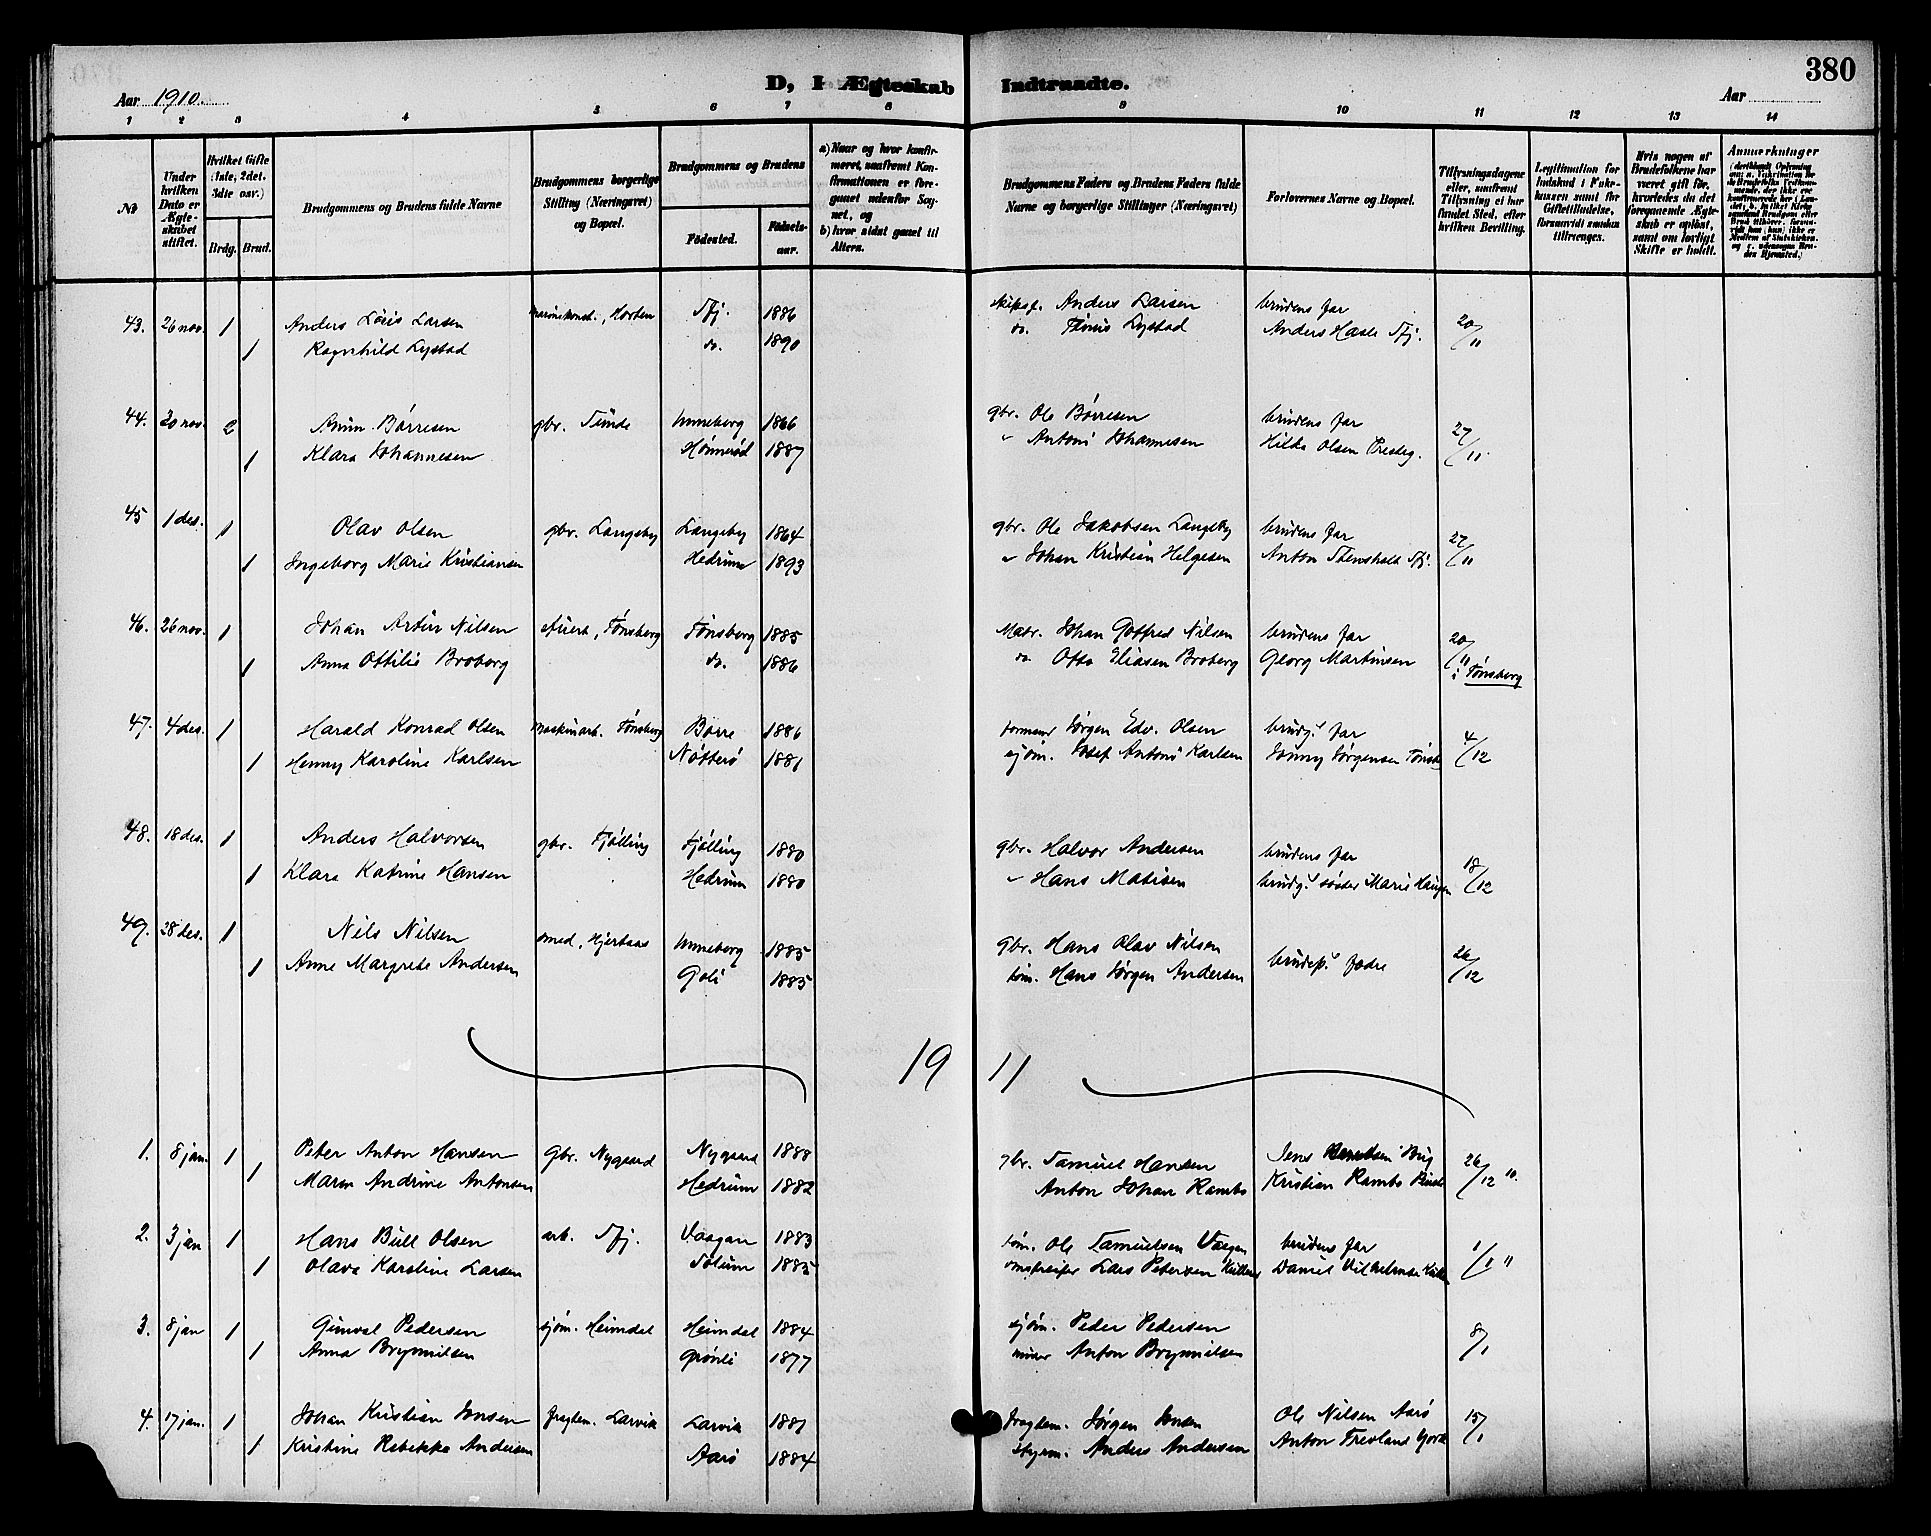 380
Aar 1910.
D, I Ægteskab Indtraadte.
Aar
1 2 3 4 5 6 7 8 9 10 11 12 13 14
No
Under hvilken Dato er Ægteskabet stiftet.
Hvilket Gifte (1ste, 2det. 3die osv.)
Brdg. Brud.
Brudgommens og Brudens fulde Navne
Brudgommens borgerlige Stilling (Næringsvei) og Bopæl.
Brudgommens og Brudens
Fødested.
Fødselsaar.
a) Naar og hvor konfirmeret, saafremt Konfirmationen er foregaaet udenfor Sognet, og
b) hvor sidst gaaet til Alters.
Brudgommens Faders og Brudens Faders fulde Navne og borgerlige Stillinger (Næringsvei)
Forlovernes Navne og Bopæl.
Tillysningsdagene eller, saafremt Tillysning ei har fundet Sted, efter hvilken Bevilling.
Legitimation for Indskud i Enkekassen samt for Giftetilladelse, forsaavidt saadan tiltrænges.
Hvis nogen af Brudefolkene har været gift før, hvorledes da det foregaaende Ægteskab er opløst, samt om lovligt Skifte er holdt.
Anmærkninger
43. 26 nov. 1 Anders Louis Larsen Horten Sfj. 1886 skipsf. Anders Larsen brudens far 20/11
1 Ragnhild Lystad do. 1890 do. Tønus Lystad Anders Hasle Sfj.
44. 30 nov. 2 Anun Børresen gbr. Sunde Unneberg 1866 gbr. Ole Børresen brudens far 27/11
1 Klara Johannesen 1887 " Antoni Johannesen Hilke Olsen
45 1 des. 1 Olav Olsen gbr. Langeby Langeby 1864 gbr. Ole Jakobsen Langeby brudens far 27/11
1 Ingeborg Marie Kristiansen Hedrum 1893 " Johan Kristian Helgesen Anton Sfj.
46. 26 nov. 1 Johan Artur Nilsen Tønsberg Tønsberg 1885 Johan Gotfred Nilsen brudens far 20/11
1 Anna Ottilie Broberg do. 1886 do. Otto Eliasen Broberg Georg Martinsen i Tønsberg
47. 4 des. 1 Harald Konrad Olsen maskinarb. Tønsberg Borre 1886 formand Jørgen Edv. Olsen brudg.s far 4/12
1 Henny Karoline Karlsen Nøtterø 1881 sjøm. Josef Antoni Karlsen Jonny Jørgensen
48. 18 des. 1 Anders Halvorsen gbr. Tjølling Tjølling 1880 gbr. Halvor Andersen brudens far 18/12
1 Klara Katrine Hansen Hedrum 1880 " Hans Matisen brudg.s søster Marie Haugen
49. 28 des. 1 Nils Nilsen smed, Hjertaas Unneberg 1885 gbr. Hans Olav Nilsen 26/12
1 Anne Margrete Andersen Goli 1885 tøm. Hans Jørgen Andersen brudep.s fædre
1911
1. 8 jan. 1 Peter Anton Hansen gbr. Nygaard Nygaard 1888 gbr. Samuel Hansen Jens 26/12 10.
1 Maren Andrine Antonsen Hedrum 1882 Anton Johan Rambo Kristian Rambo
2. 3 jan 1 Hans Bull Olsen arb. Sfj. Vaagan 1883 tøm. Ole Samuelsen brudens far 1/1 11
1 Olava Karoline Larsen Solum 1885 Lars Petersen Daniel Vilhelmsen
3. 8 jan 1 Gunval Pedersen sjøm. Heimdal Heimdal 1884 sjøm. Peder Pedersen 8/1
1 Anna Brynnilsen Grønli 1877 murer Anton Brynnilsen
4. 17 jan. 1 Johan Kristian Jonsen fragtem. Larvik Larvik 1881 fragtem. Jørgen Jonsen Ole Nilsen Aarø 15/1
1 Kristine Rebekka Andersen Aarø 1884 styrm. Anders Andersen Anton